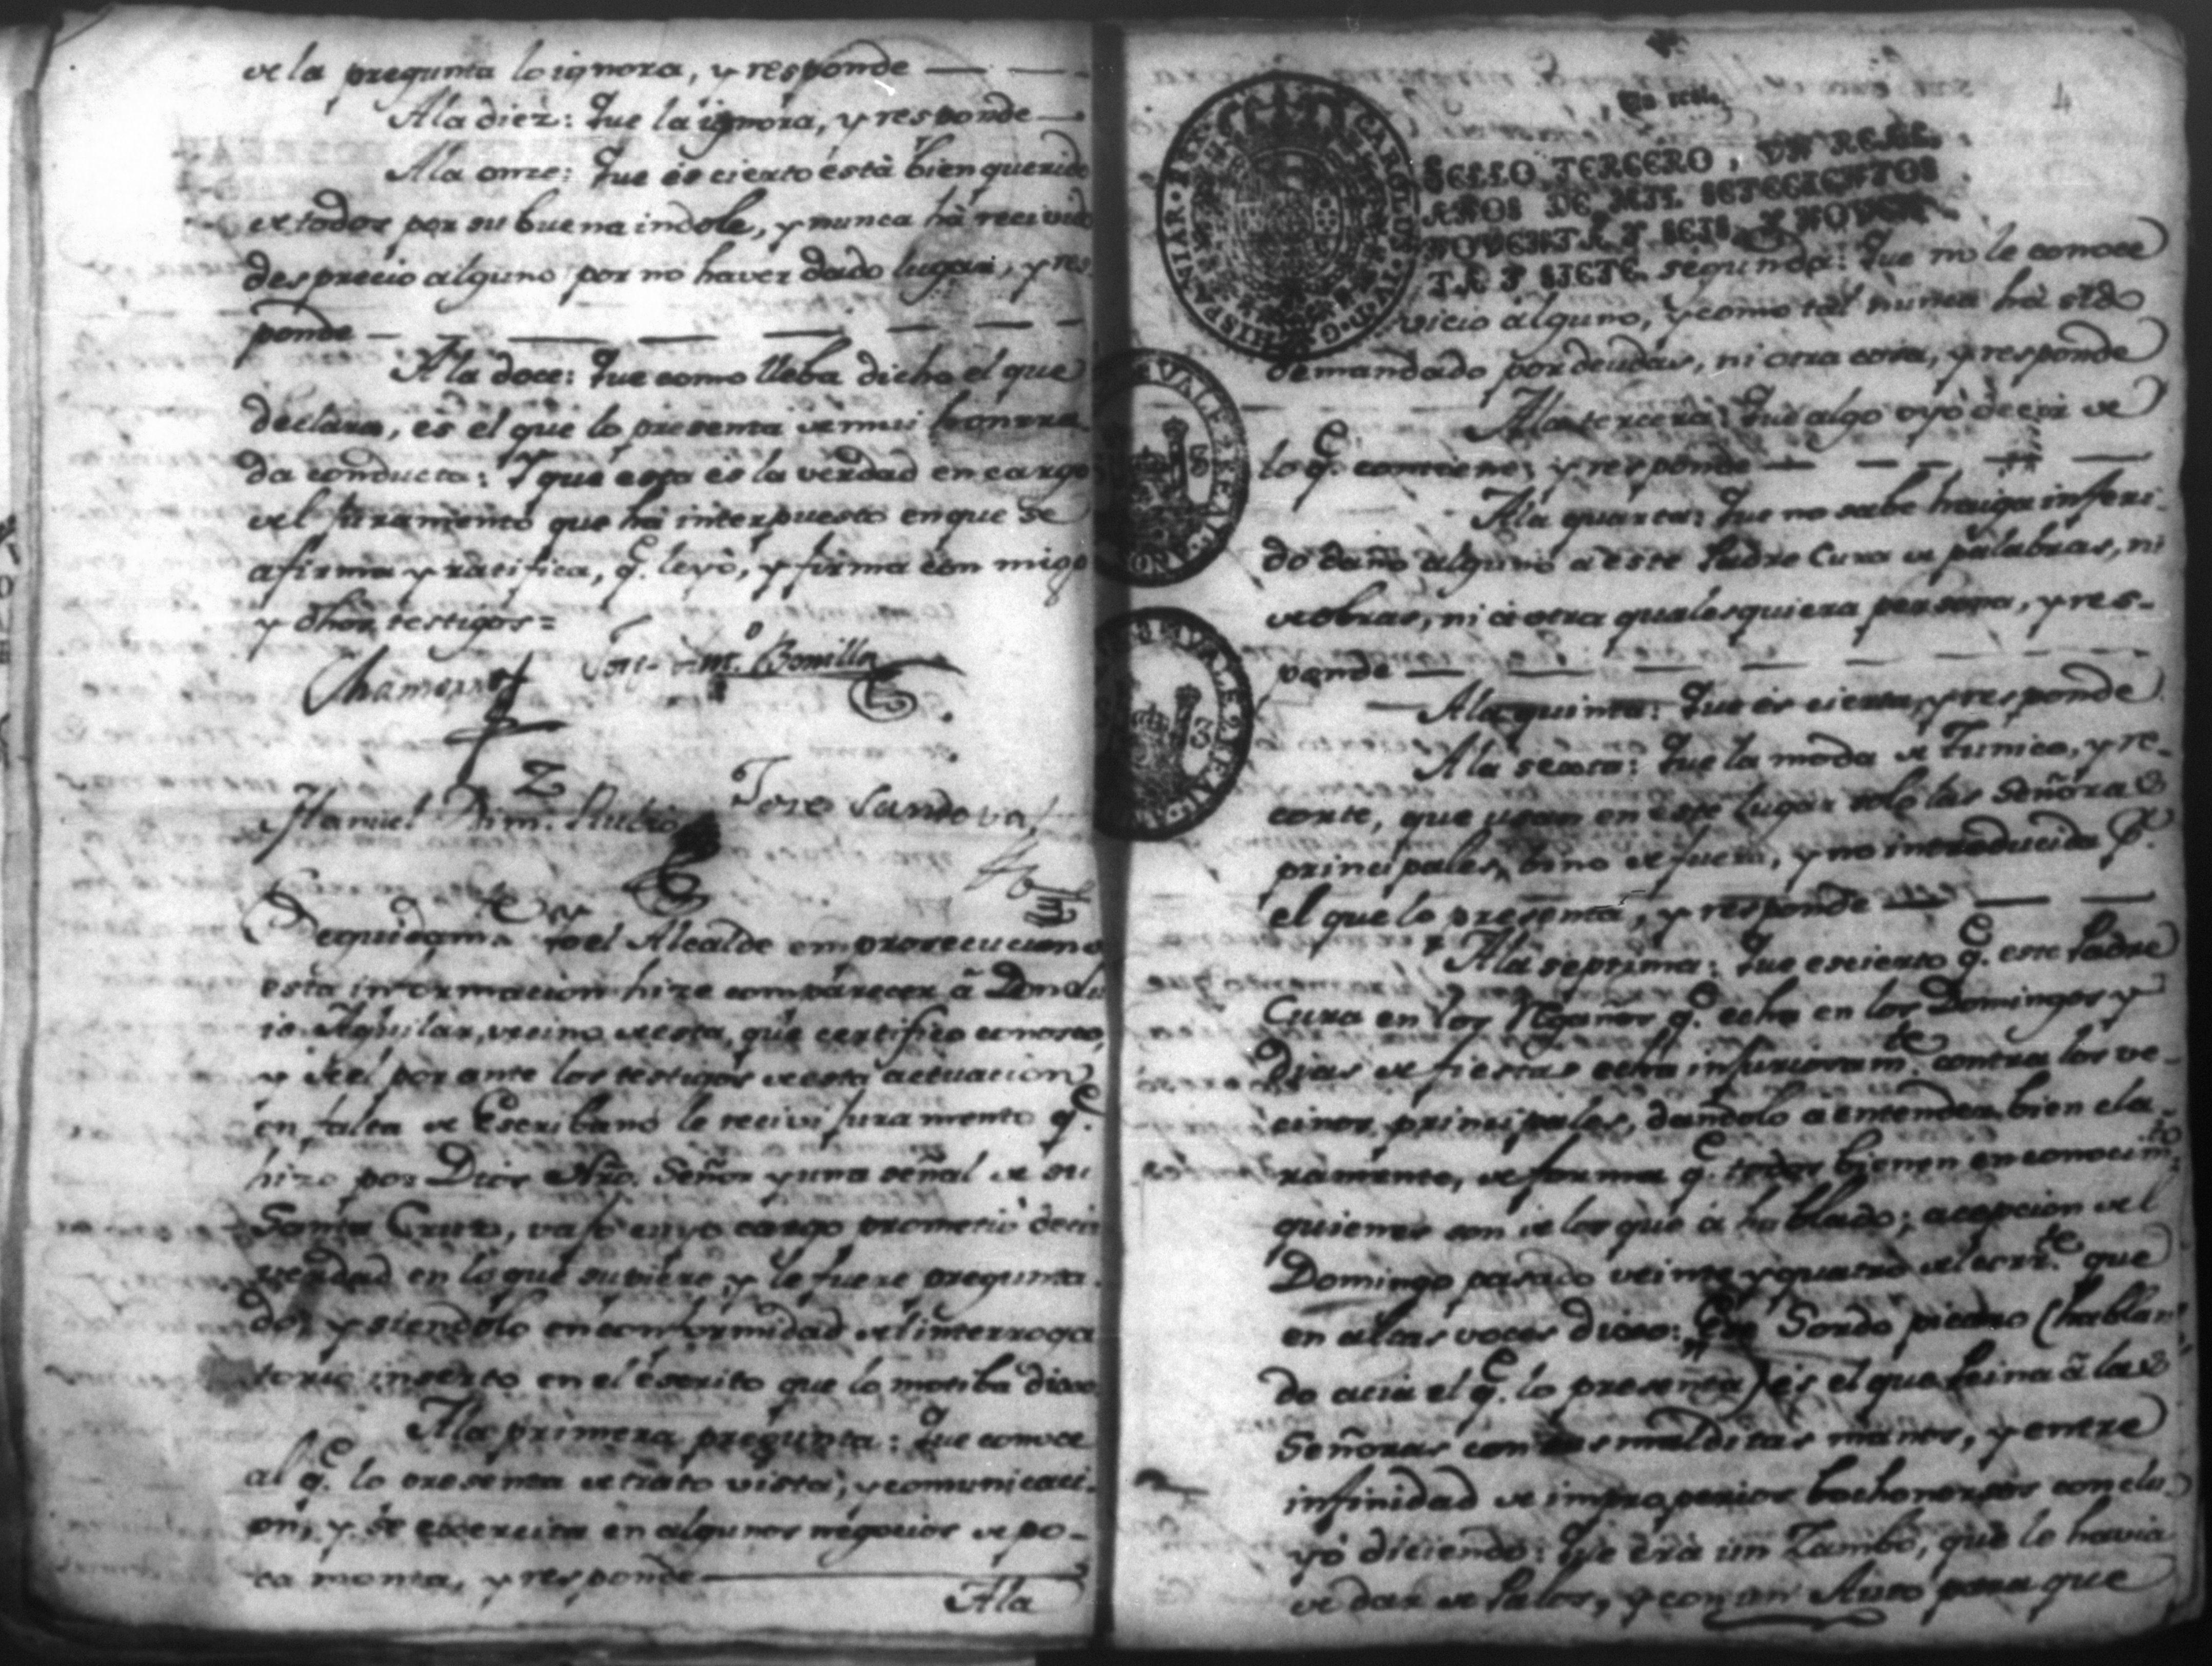 de la pregunta lo ignora, y responde
A la diez: Que la ignora, y responde
A la onze: Que és cierto está bien querido
de todos por su buena indole, y nunca há recivido
desprecio alguno por no haver dado lugar, y res
ponde
A la doce: Que como lleba dicho el que
declara, es el que lo presenta de mui honrra
da conducta: Y que esta es la verdad en cargo
del Juramento que há interpuesto en que se
afirma y ratifica, q.e leyó, y firma con migo
y dhos testigos=
Chamorro
Ant.o Bonilla
Manuel Rubio
Jose Sandoval
Seguidam.te Yo el Alcalde en prosecucion
esta informacion hize comparecer á Don
Aguilar, vecino de esta, que certifico conosco,
y de el por ante los testigos de esta actuacion
en falta de Escribano le recivi juramento q.e
hizo por Dios Nro. Señor y una señal de su
Santa Cruz, vajo cuyo cargo prometió decir
verdad en lo que supiere, y le fuere pregunta
do, y siendolo en conformidad del interroga
torio inserto en el escrito que lo motiba dixo
A la primera pregunta: Que conoce
al q.e lo presenta de trato vista, y comunicaci
on, y se exercita en algunos negocios de po-
ca monta, y responde
A la
4
Un real
SELLO TERCERO, UN REAL.
AÑOS DE MIL SETECIENTOS
NOVENTA Y SEIS, Y NOVEN-
TA Y SIETE.
CAROLUS IV D G HISPANIAR REX
VALE REAL
VALE REAL
segunda: Que no le conoce
vicio alguno, y como tal nunca há sido
demandado por deudas, ni otra cosa, y responde
A la tercera: Que algo oyó decir de
lo q.e contiene, y responde
A la quarta: Que no sabe haiga inferi-
do daño alguno a este Padre Cura de palabras, ni
de obras, ni á otra qualesquiera persona, y res-
ponde
A la quinta: Que és cierta, y responde
A la sexta: Que la moda de Tunico, y re-
corte, que usan en este lugar solo las Señoras
principales, bino de fuera, y no introducida p.r
el que lo presenta, y responde
A la septima: Que es cierto q.e este Padre
Cura en los Regaños q.e echa en los Domingos y
Dias de fiestas echa injuriosam.te contra los ve-
cinos principales, dandolo a entender bien cla-
ramente, de forma q.e todos bienen en conocim.to
quienes son de los que á hablado; acepcion del
Domingo pasado veinte y quatro del corr.te que
en altas voces dixo: Ese Sordo picaro (hablan
do acia el q.e lo presenta) és el que Peina á las
Señoras con sus malditas manos, y entre
infinidad de improperios bochonorsos conclu
yó diciendo: Que éra un Zambo, que lo havia
de dar de Palos, y con un Auto para que